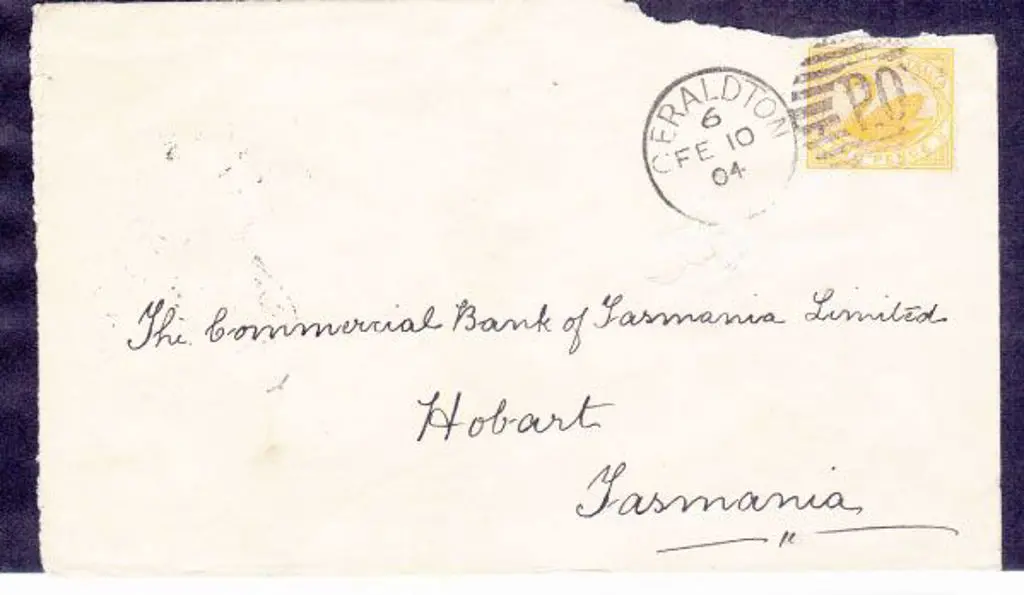 GERALDTON
6
FE 10
04
PO
PENCE
The Commercial Bank of Tasmania Limited
Hobart
Tasmania
"